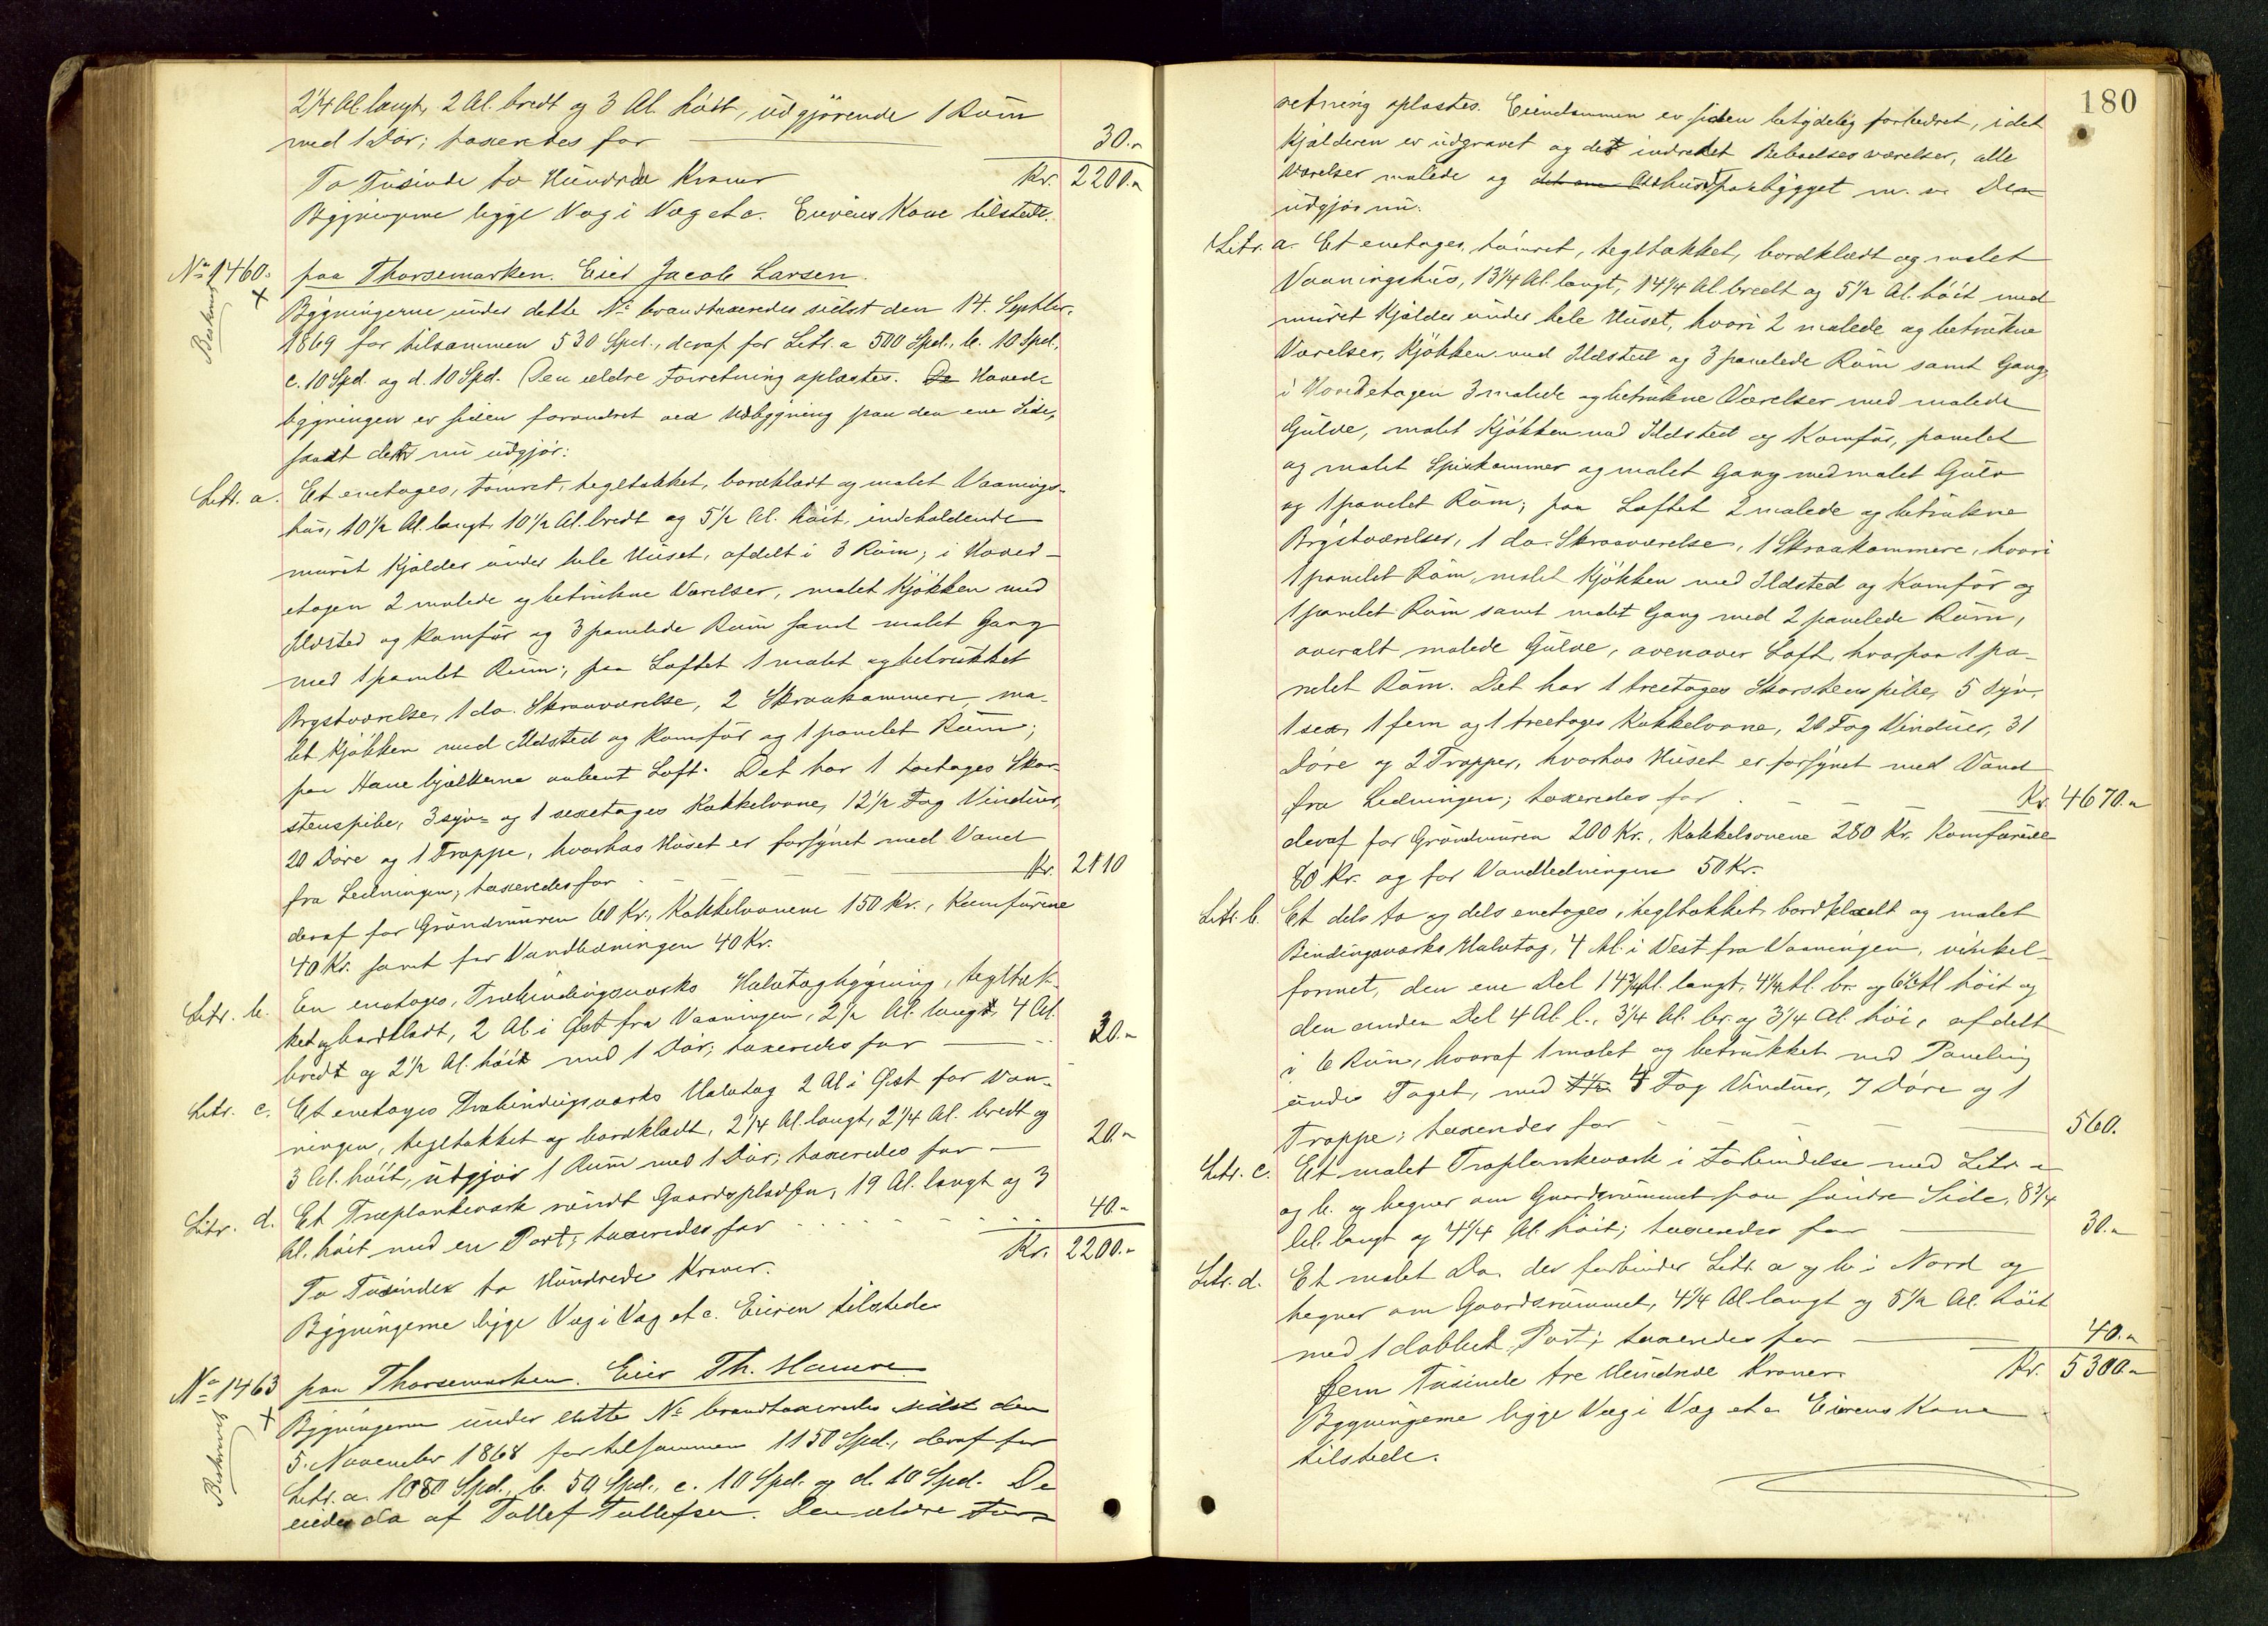 2 1/4 Al. langt, 2 Al. bredt og 3 Al. höit, udgjörende 1 Rum
med 1 Dör; taxeredes for 30.-
To Tusinde to Hundrede Kroner Kr. 2200.-
Bygningerne ligge Væg i Væg etc. Eierens Kone tilstede.
No 1460. paa Thorsemarken. Eier Jacob Larsen.
Beskrevet x
Bygningerne under dette No brandtaxeredes sidst den 14. Septbr.
1869 for tilsammen 530 Spd., deraf for Litr. a 500 Spd., b. 10 Spd.,
c. 10 Spd. og d. 10 Spd. Den ældre Forretning oplæstes. De Hoved-
bygningen er siden forandret ved Udbygning paa den ene Side,
saa at den nu udgjör:
Litr. a. Et enetages, tömret, tegltækket, bordklædt og malet Vaanings-
hus, 10 1/2 Al. langt, 10 1/2 Al. bredt og 5 1/2 Al. höit, indeholdende
muret Kjælder under hele Huset, afdelt i 3 Rum; i Hoved-
etagen 2 malede og betrukne Værelser, malet Kjökken med
Ildsted og Komfür og 3 panelede Rum samt malet Gang
med 1 panelet Rum; paa Loftet 1 malet og betrukket
Brystværelse, 1 do. Skraaværelse, 2 Skraakammere, ma-
let Kjökken med Ildsted og Komfür og 1 panelet Rum;
paa Hanebjælkerne aabent Loft. Det har 1 toetages Skor-
stenspibe, 3 syv- og 1 sexetages Kakkelovne, 12 1/2 Fag Vinduer,
20 Döre og 1 Trappe, hvorhos Huset er forsynet med Vand
fra Ledningen; taxeredes for Kr. 2110
deraf for Grundmuren 60 Kr., Kakkelovnene 150 Kr., Komfürene
40 Kr. samt for Vandledningen 40 Kr.
Litr. b. En enetages, Træbindingsværks Halvtagbygning, tegltæk-
ket og bordklædt, 2 Al. i Öst fra Vaaningen, 2 1/2 Al. langt, 4 Al.
bredt og 2 1/2 Al. höit med 1 Dör; taxeredes for 30.-
Litr. c. Et enetages Træbindingsværks Halvtag 2 Al. i Öst for Vaa-
ningen, tegltækket og bordklædt, 2 1/4 Al. langt, 2 1/4 Al. bredt og
3 Al. höit, udgjör 1 Rum med 1 Dör; taxeredes for 20.-
Litr. d. Et Træplankeværk rundt Gaardspladsen, 19 Al. langt og 3
Al. höit med en Port; taxeredes for 40.-
To Tusinde to Hundrede Kroner. Kr. 2200.-
Bygningerne ligge Væg i Væg etc. Eieren tilstede
No 1463 paa Thorsemarken. Eier Th. Hansen.
Beskrevet x
Bygningerne under dette No brandtaxeredes sidst den
5. November 1868 for tilsammen 1150 Spd., deraf for
Litr. a. 1080 Spd., b. 50 Spd., c. 10 Spd. og d. 10 Spd. De
eiedes da af Tollef Tollefsen. Den ældre For-
180
retning oplæstes. Eiendommen er siden betydelig forbedret, idet
Kjælderen er udgravet og det indredet Beboelsesværelser, alle
Værelser malede og det ene Udhus paabygget m. v. Den
udgjör nu:
Litr. a. Et enetages, tömret, tegltækket, bordklædt og malet
Vaaningshus, 13 1/4 Al. langt, 14 1/4 Al. bredt og 5 1/2 Al. höit med
muret Kjælder under hele Huset, hvori 2 malede og betrukne
Værelser, Kjökken med Ildsted og 3 panelede Rum samt Gang;
i Hovedetagen 3 malede og betrukne Værelser med malede
Gulve, malet Kjökken med Ildsted og Komfür, panelet
og malet Spisekammer og malet Gang med malet Gulv
og 1 panelet Rum; paa Loftet 2 malede og betrukne
Brystværelser, 1 do. Skraaværelse, 1 Skraakammere, hvori
1 panelet Rum, malet Kjökken med Ildsted og Komfür og
1 panelet Rum samt malet Gang med 2 panelede Rum,
overalt malede Gulve, ovenover Loft, hvorpaa 1 pa-
nelet Rum. Det har 1 treetages Skorstenspibe, 5 syv-
1 sex, 1 fem og 1 treetages Kakkelovne, 20 Fag Vinduer, 31
Döre og 2 Trapper, hvorhos Huset er forsynet med Vand
fra Ledningen; taxeredes for Kr. 4670.-
deraf for Grundmuren 200 Kr., Kakkelovnene 280 Kr. Komfürene
80 Kr. og for Vandledningen 50 Kr.
Litr. b. Et dels to og dels enetages, tegltækket, bordklædt og malet
Bindingsværks Halvtag, 4 Al. i Vest fra Vaaningen, vinkel-
formet, den ene Del 14 3/4 Al. langt, 4 1/4 Al. br. og 6 1/2 Al höit og
den anden Del 4 Al. l., 3 1/4 Al. br. og 3 1/4 Al. höi, afdelt
i 6 Rum, hvoraf 1 malet og betrukket med Paneling
under Taget, med 4 Fag Vinduer, 7 Döre og 1
Trappe; taxeredes for 560.
Litr. c. Et malet Træplankeværk i Forbindelse med Litr. a
og b. og hegner om Gaardsrummet paa söndre Side, 8 3/4
Al. langt og 4 1/4 Al. höit; taxeredes for 30.-
Litr. d. Et malet Do. der forbinder Litr. a og b. i Nord og
hegner om Gaardsrummet, 4 1/4 Al langt og 5 1/2 Al. höit
med 1 dobbelt Port; taxeredes for 40.-
Fem Tusinde tre Hundrede Kroner. Kr. 5300.-
Bygningerne ligge Væg i Væg etc Eierens Kone
tilstede.